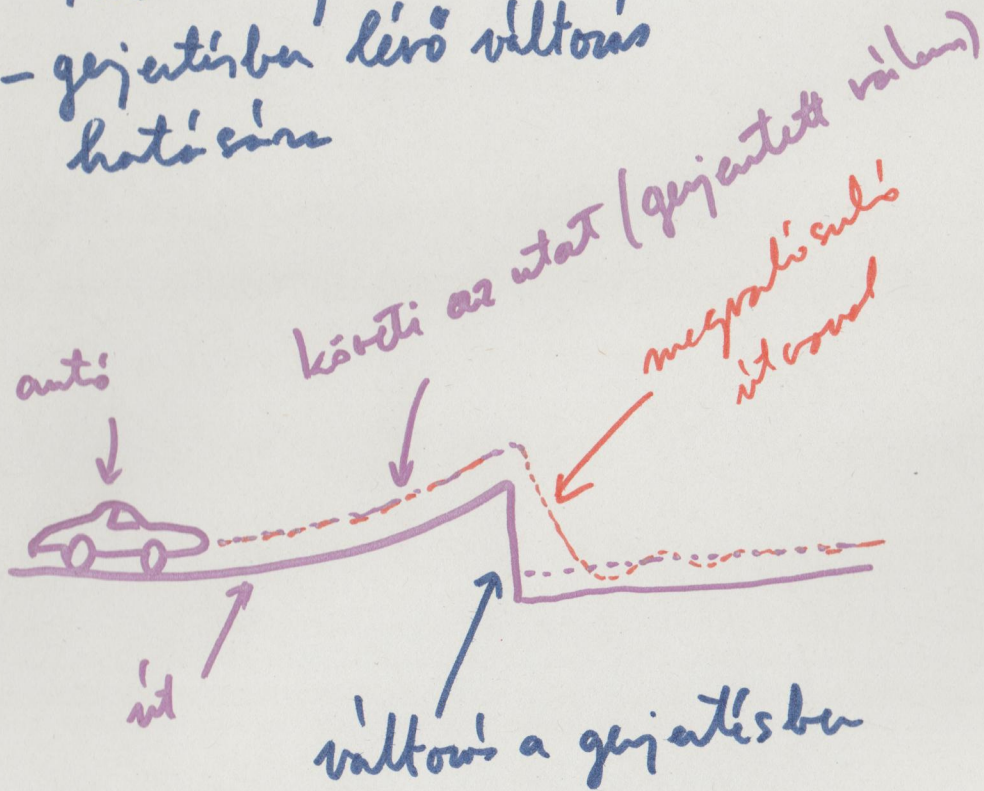 - gerjentésben lévő változás
hatására
követi az utat (gerjentett válasz)
megvalósuló
útvonal
autó
út
változás a gerjentésben